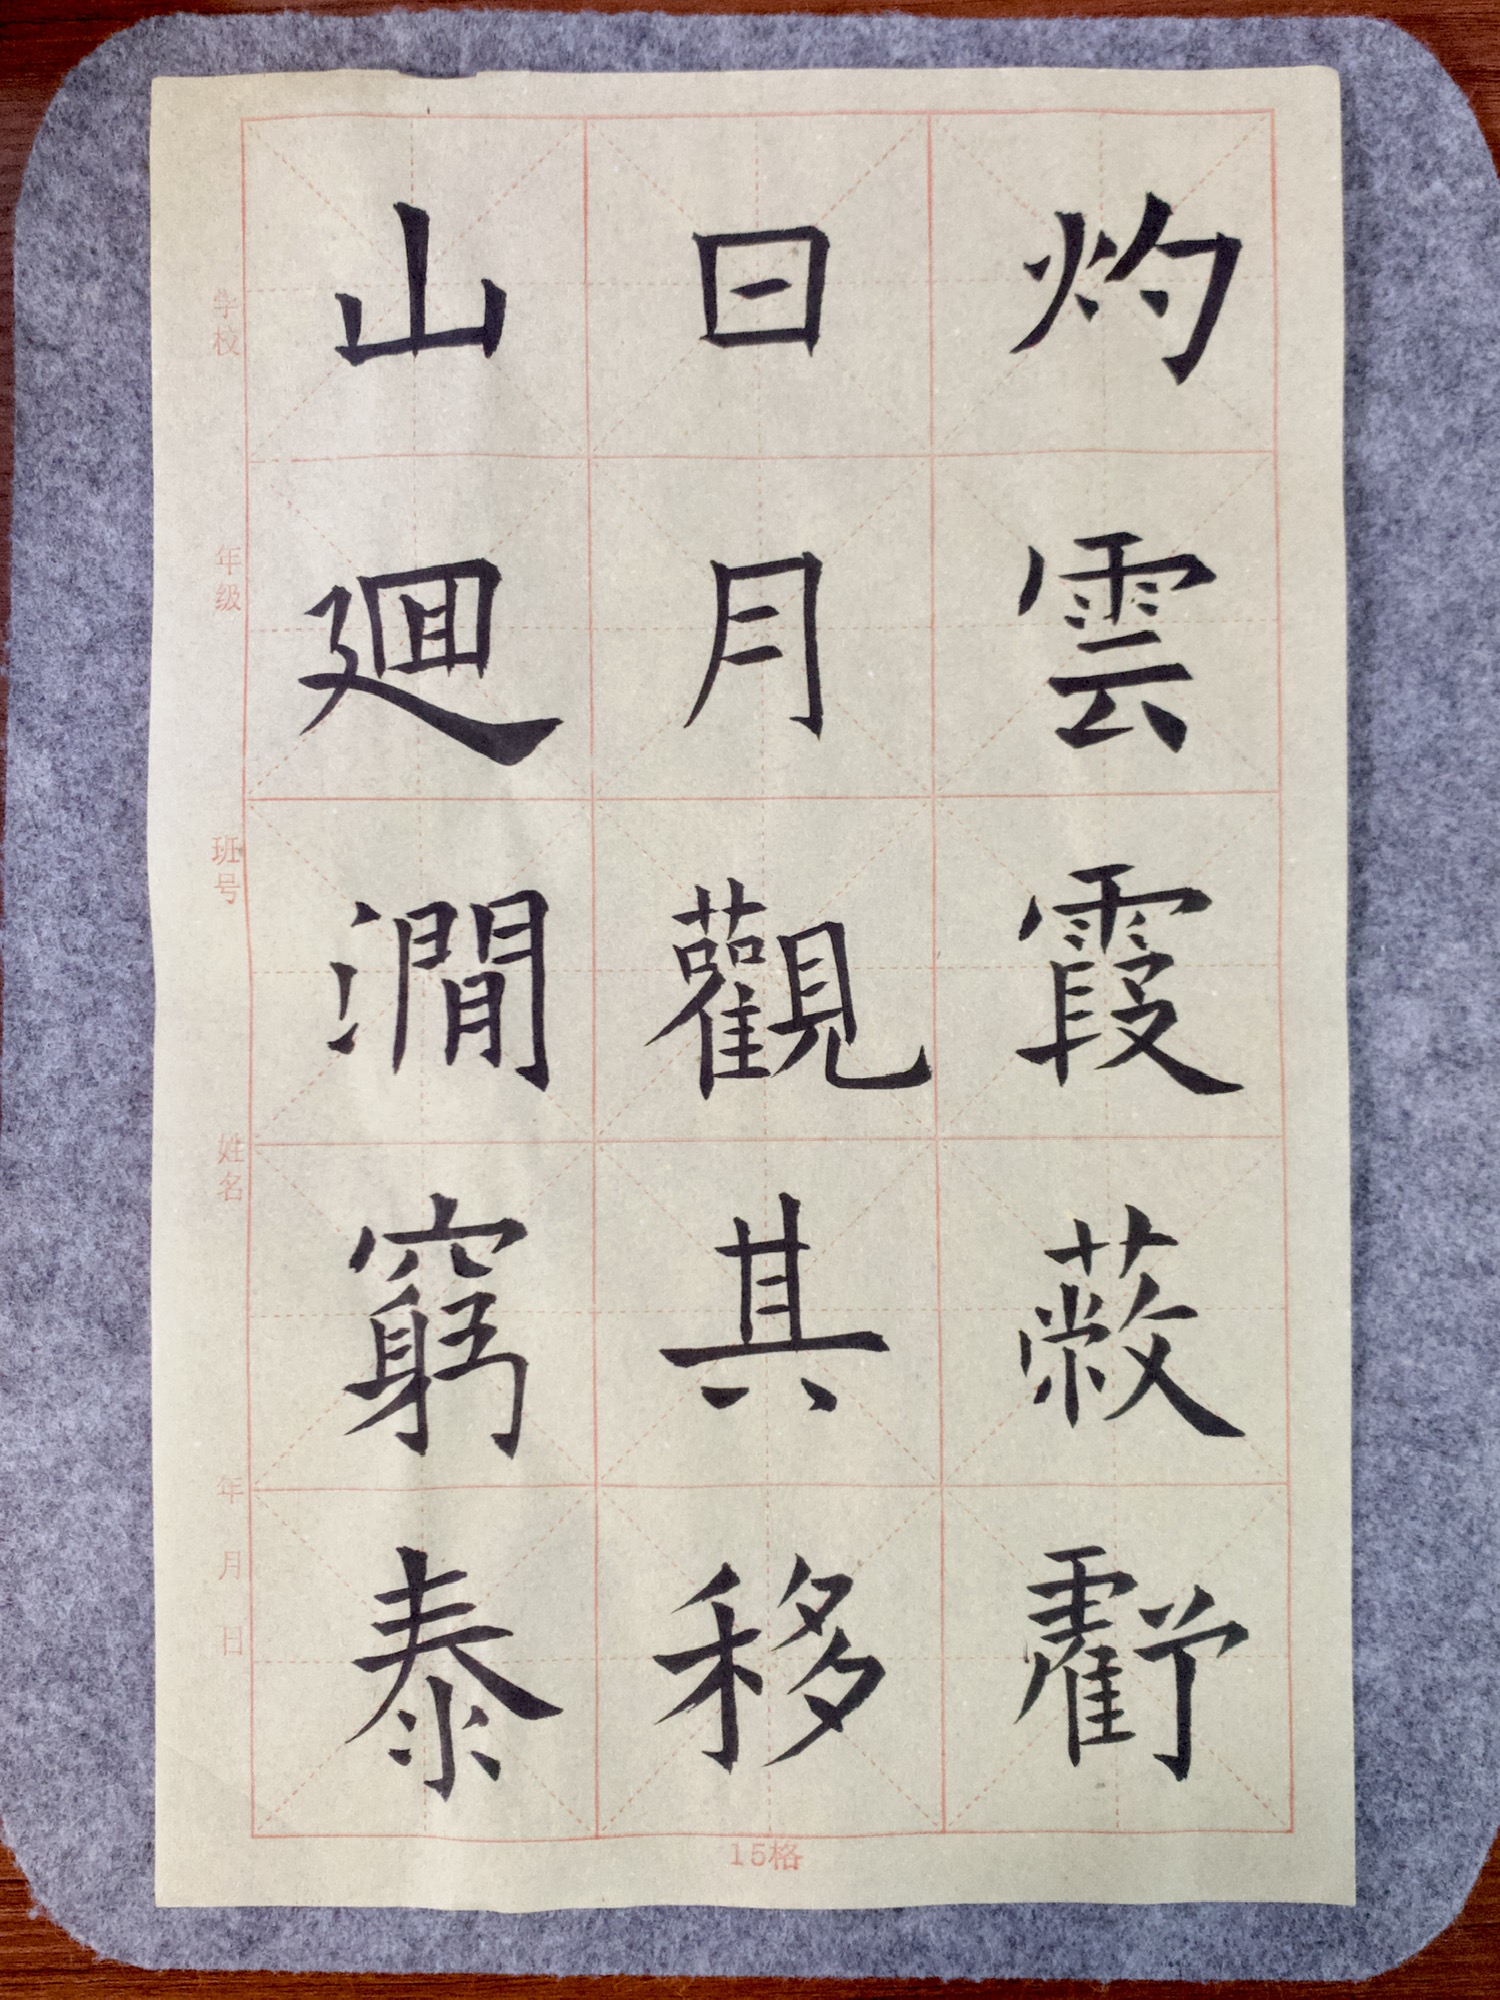 灼雲霞蔽虧
日月觀其移
山廽㵎窮泰
学校 年级 班号 姓名 年 月 日
15格